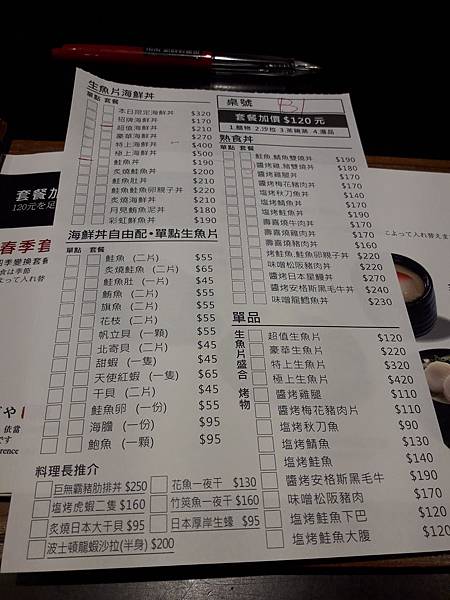 生魚片海鮮丼
單點 套餐
本日限定海鮮丼 $320
招牌海鮮丼 $170
超值海鮮丼 $210
豪華海鮮丼 $270
特上海鮮丼 $400
極上海鮮丼 $500
鮭魚丼 $190
炙燒鮭魚丼 $200
鮭魚肚丼 $210
鮭魚鮭魚卵親子丼 $220
炙燒海鮮丼 $210
月見鮪魚泥丼 $180
彩虹鮮魚丼 $190
海鮮丼自由配•單點生魚片
單點 套餐
鮭魚 (二片) $55
炙燒鮭魚 (二片) $65
鮭魚肚 (一片) $45
鮪魚 (二片) $55
旗魚 (二片) $55
花枝 (二片) $55
帆立貝 (一顆) $55
北寄貝 (二片) $45
甜蝦 (一隻) $55
天使紅蝦 (一隻) $65
干貝 (二片) $45
鮭魚卵 (一份) $55
海膽 (一份) $95
鮑魚 (一顆) $95
料理長推介
巨無霸豬肋排丼 $250
塩烤虎蝦二隻 $160
炙燒日本大干貝 $95
波士頓龍蝦沙拉(半身) $200
花魚一夜干 $130
竹筴魚一夜干 $160
日本厚岸生蠔 $95
桌號 B1
套餐加價 $120 元
1.麵物 2.沙拉 3.茶碗蒸 4.湯品
熟食丼
單點 套餐
鮭魚,鯖魚雙燒丼 $190
醬烤雞,豬雙燒丼 $180
醬烤雞腿丼 $170
醬烤梅花豬肉丼 $170
塩烤秋刀魚丼 $140
塩烤鯖魚丼 $170
塩烤鮭魚丼 $190
壽喜燒牛肉丼 $170
壽喜燒雞肉丼 $170
壽喜燒豬肉丼 $160
烤鮭魚,鮭魚卵親子丼 $220
味噌松阪豬肉丼 $220
醬烤日本星鰻丼 $270
醬烤安格斯黑毛牛丼 $240
味噌龍鱈魚丼 $230
單品
生魚片盛合
超值生魚片 $120
豪華生魚片 $220
特上生魚片 $320
極上生魚片 $420
烤物
醬烤雞腿 $110
醬烤梅花豬肉片 $110
塩烤秋刀魚 $90
塩烤鯖魚 $130
塩烤鮭魚 $140
醬烤安格斯黑毛牛 $190
味噌松阪豬肉 $170
塩烤鮭魚下巴 $120
塩烤鮭魚大腹 $120
套餐加
120元を足
春季套
四季變換套餐
食は季節
よって入れ替
によって入れ替えま